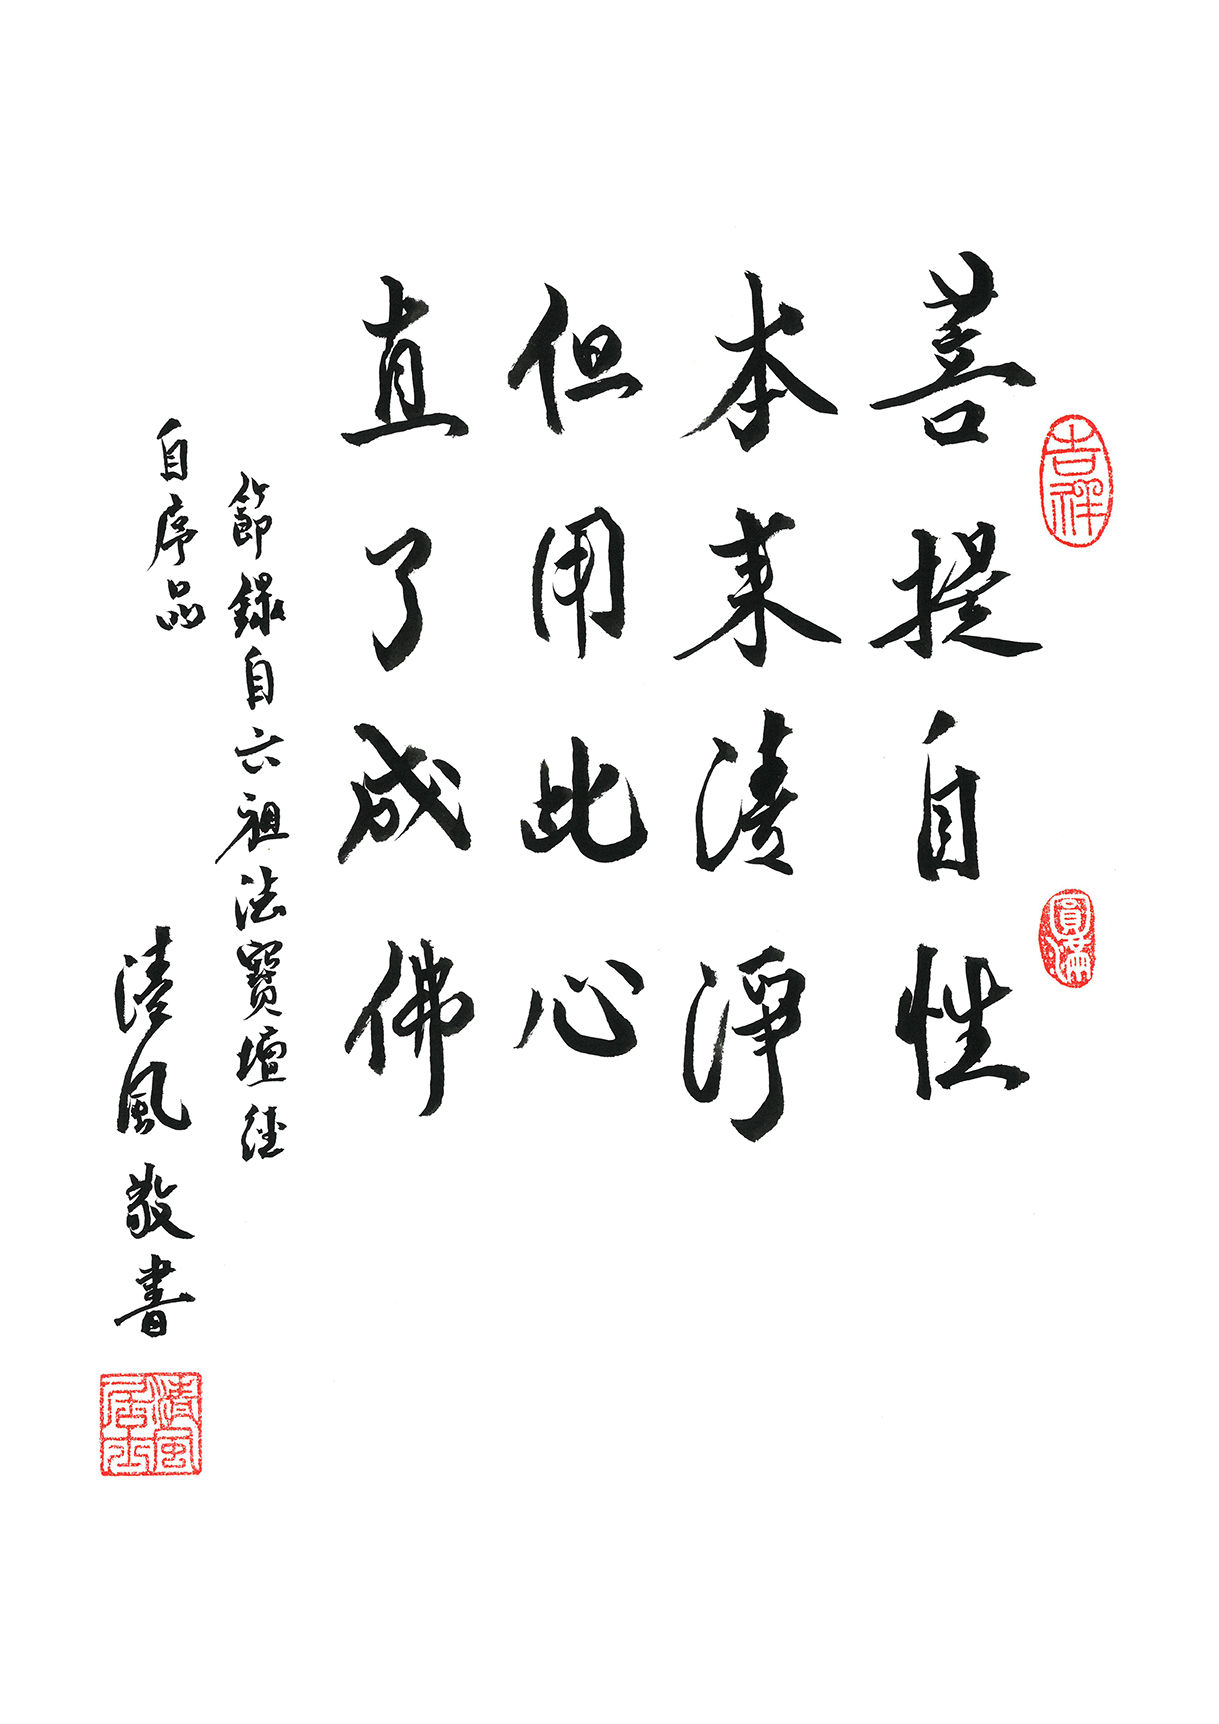 菩提自性
本来清淨
但用此心
直了成佛
節錄自六祖法寶壇經
自序品
清風敬書
吉祥
圓滿
清風居士